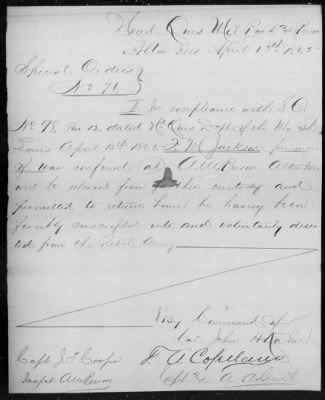 Head Qurs Mil Post & Prison
Alton Ills April 13th 1865
Special Orders }
No 76 }
II In compliance with S.O.
No 98. Par 12. dated Hd Qurs Dept of the Mo St.
Louis April 12th 1865 F M Jackson prisoner
of war confined at A M Prison Alton Ills
will be released from further custody and
permitted to return home he having been
forcibly conscripted into and voluntarily deser-
ted from the Rebel Army
By Command of
Col John H Kuhn
F. A Copeland
Capt & A. A. Genl
Capt J F Cooper
Inspt A M Prison